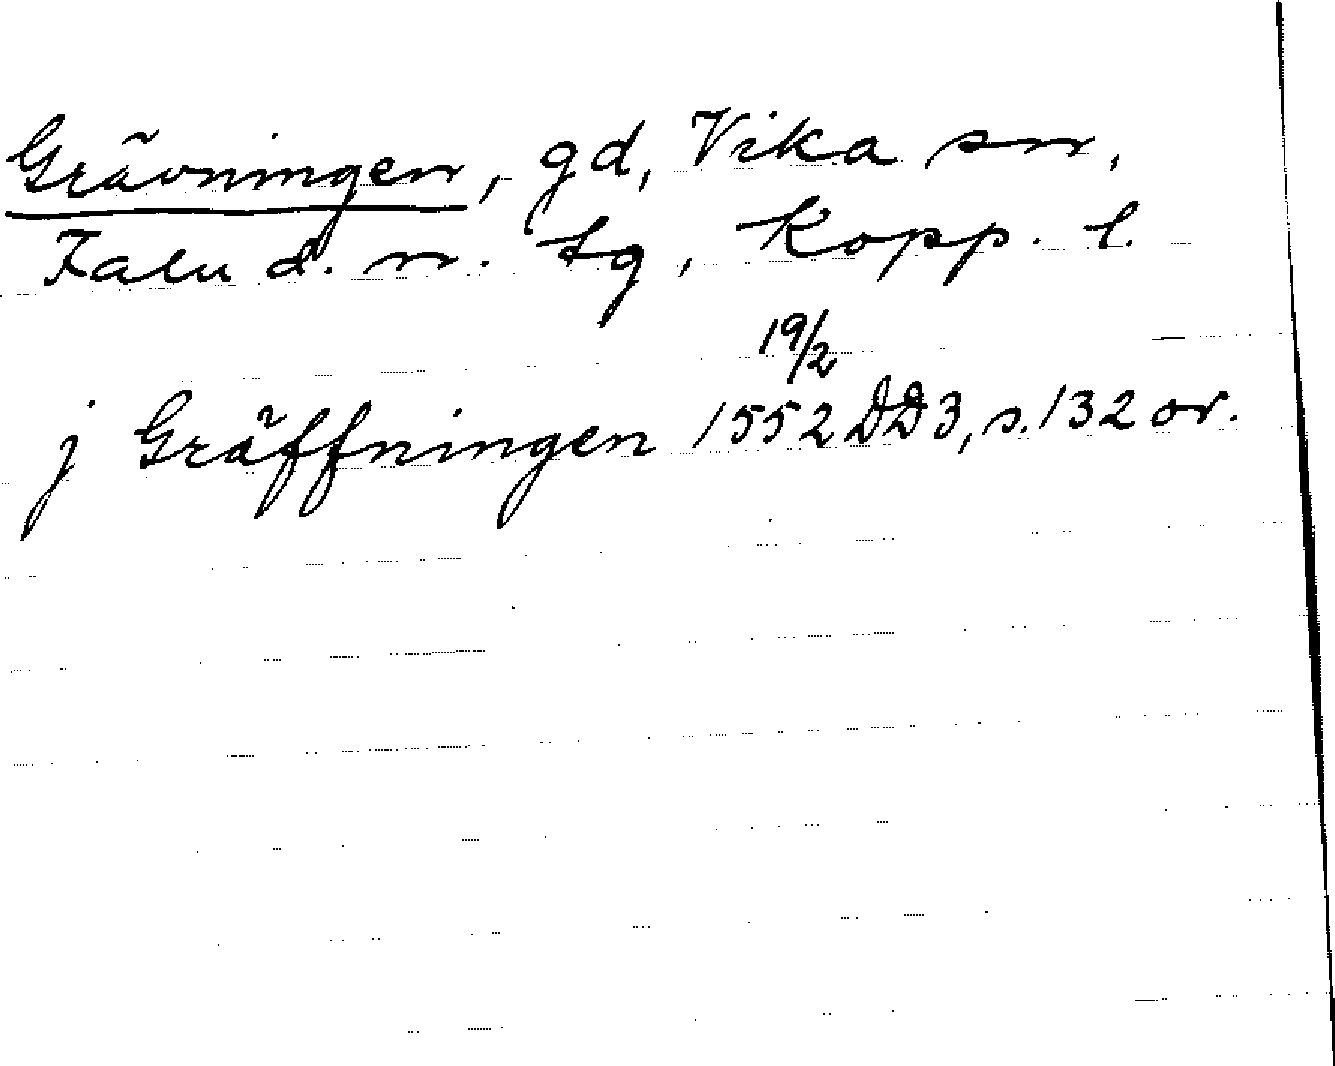 Grävningen, gd, Vika sn,
Falu d. n. tg, Kopp. l.
19/2
j Gräffningen 1552 DD3, s. 132 or.